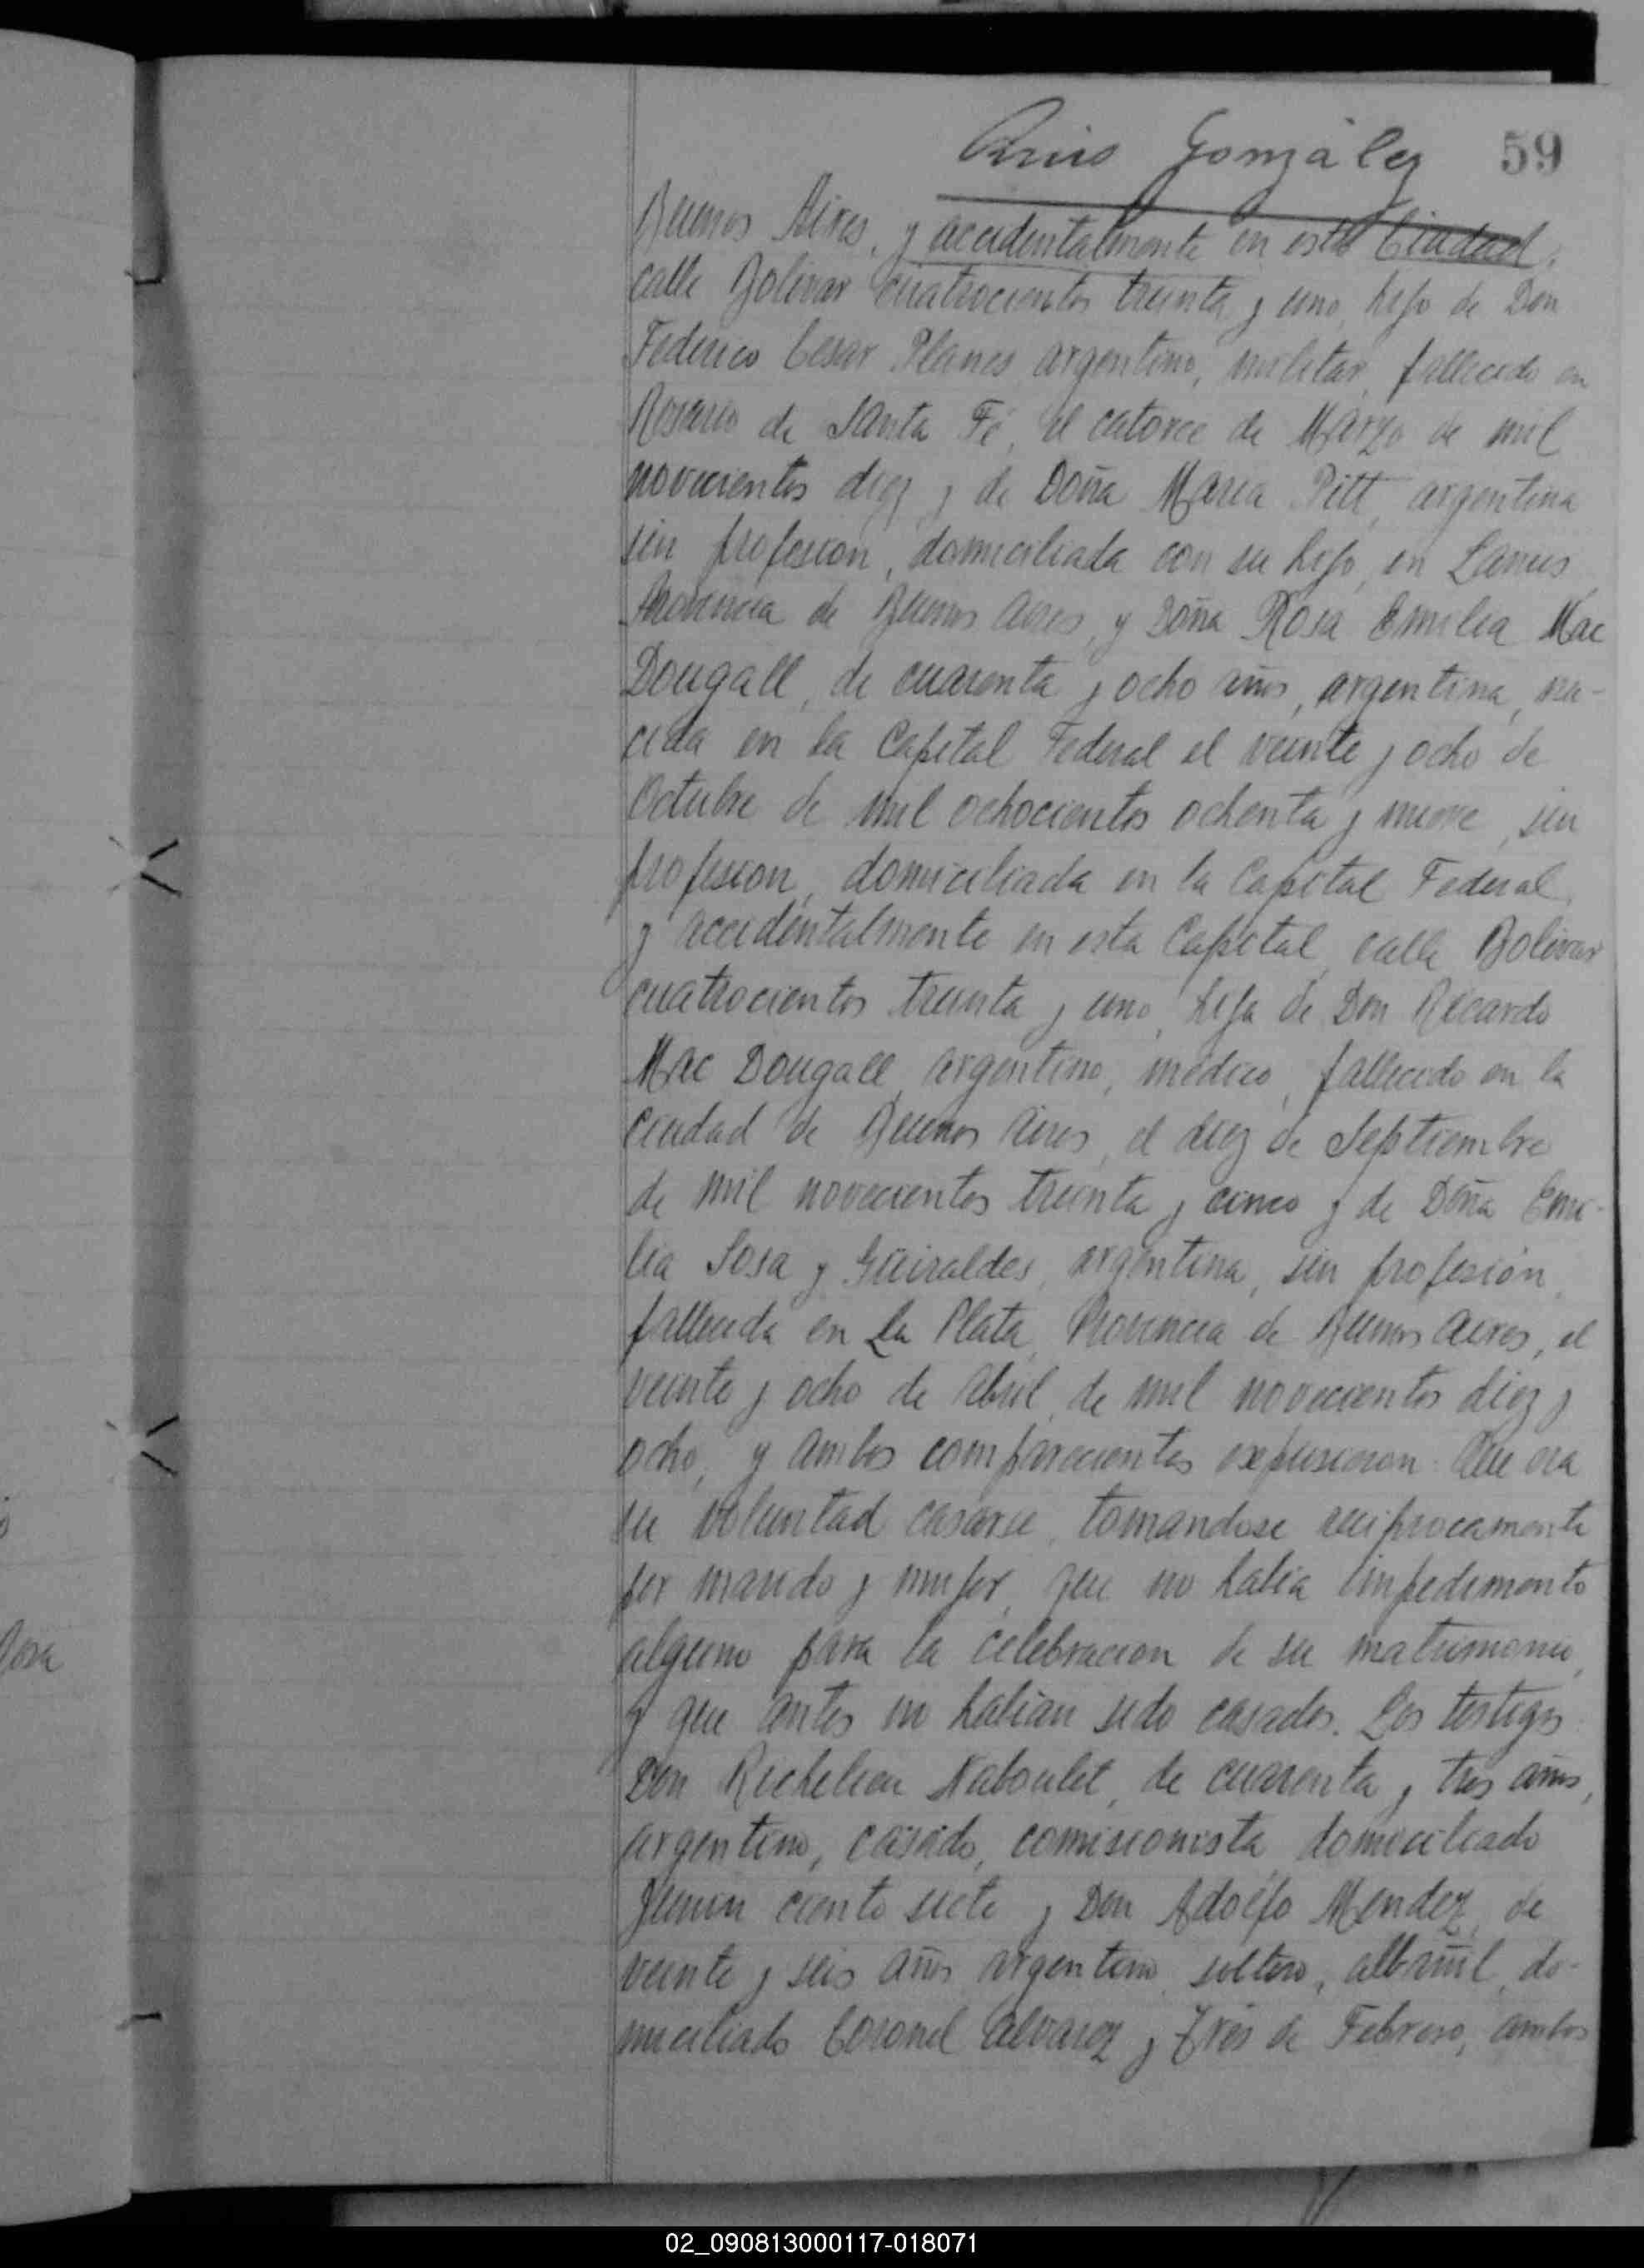 González 59
Buenos Aires, y accidentalmente en esta Ciudad,
calle Bolivar cuatrocientos treinta y uno, hijo de Don
Federico Cesar Planes argentino, militar, fallecido en
Rosario de Santa Fé, el catorce de Marzo de mil
novecientos diez y de Doña Maria Pitt, argentina
sin profesion, domiciliada con su hijo, en Lanus
Provincia de Buenos Aires, y Doña Rosa Emilia Mac
Dougall, de cuarenta y ocho años, argentina, na-
cida en la Capital Federal el veinte y ocho de
Octubre de mil ochocientos ochenta y nueve, sin
profesion, domiciliada en la Capital Federal,
y accidentalmente en esta Capital, calle Bolivar
cuatrocientos treinta y uno, hija de Don Ricardo
Mac Dougall argentino, médico, fallecido en la
ciudad de Buenos Aires, el diez de Septiembre
de mil novecientos treinta y cinco y de Doña Emi-
lia Sosa y Güiraldes, argentina, sin profesión,
fallecida en La Plata, Provincia de Buenos Aires, el
veinte y ocho de Abril de mil novecientos diez y
ocho, y ambos comparecientes expusieron: Que era
su voluntad casarse, tomandose reciprocamente
por marido y mujer, que no habia impedimento
alguno para la celebracion de su matrimonio,
y que antes no habian sido casados. Los testigos
Don Richelieu Naboulet, de cuarenta y tres años,
argentino, casado, comisionista, domiciliado
Junin ciento siete y Don Adolfo Mendez, de
veinte y seis años argentino, soltero, albañil, do-
miciliado Coronel Alvarez y Tres de Febrero, ambos
Rosa
02_090813000117-018071